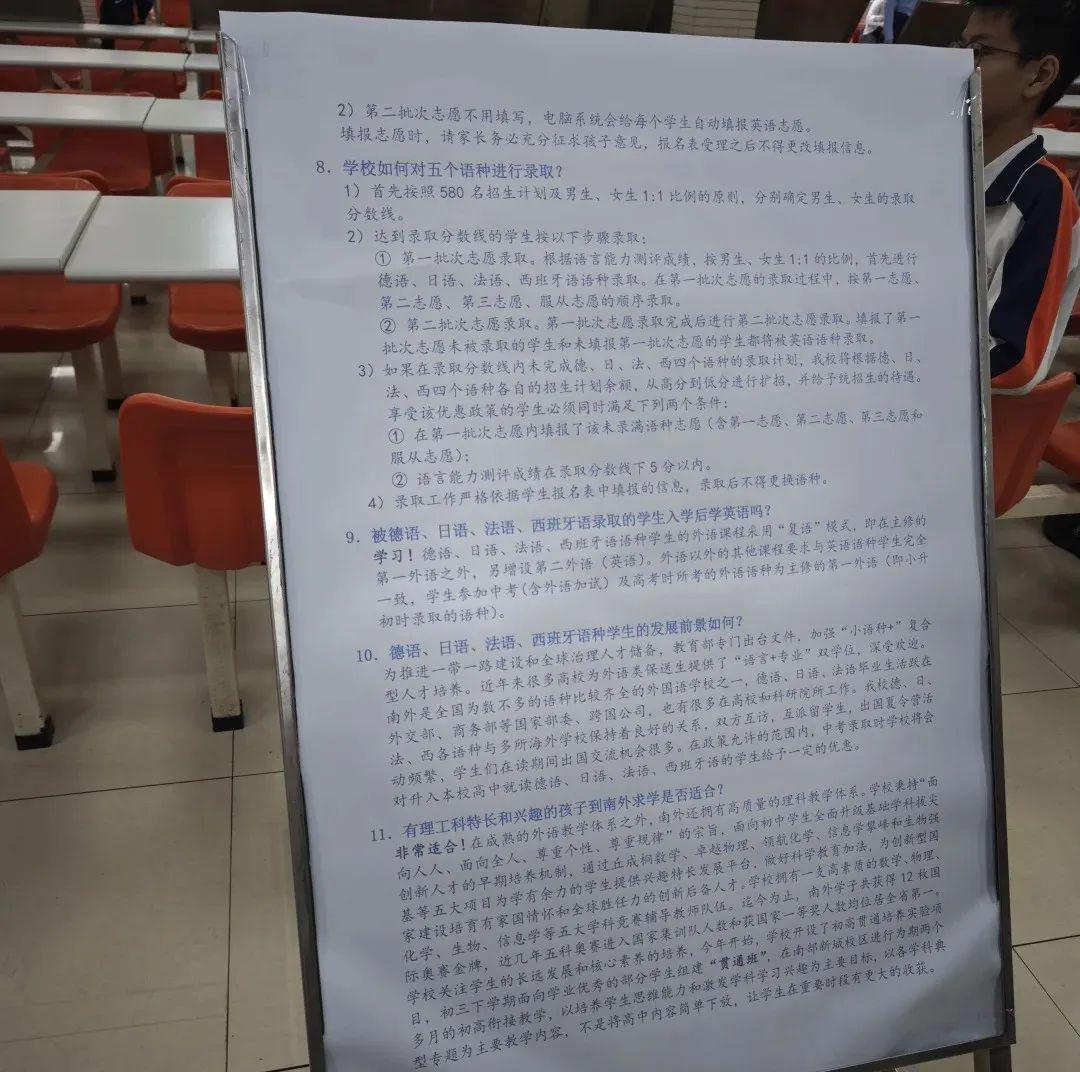 2）第二批次志愿不用填写，电脑系统会给每个学生自动填报英语志愿。
填报志愿时，请家长务必充分征求孩子意见，报名表受理之后不得更改填报信息。
8. 学校如何对五个语种进行录取？
1）首先按照 580 名招生计划及男生、女生 1:1 比例的原则，分别确定男生、女生的录取
分数线。
2）达到录取分数线的学生按以下步骤录取：
① 第一批次志愿录取。根据语言能力测评成绩，按男生、女生 1:1 的比例，首先进行
德语、日语、法语、西班牙语语种录取。在第一批次志愿的录取过程中，按第一志愿、
第二志愿、第三志愿、服从志愿的顺序录取。
② 第二批次志愿录取。第一批次志愿录取完成后进行第二批次志愿录取。填报了第一
批次志愿未被录取的学生和未填报第一批次志愿的学生都将被英语语种录取。
3）如果在录取分数线内未完成德、日、法、西四个语种的录取计划，我校将根据德、日、
法、西四个语种各自的招生计划余额，从高分到低分进行扩招，并给予统招生的待遇。
享受该优惠政策的学生必须同时满足下列两个条件：
① 在第一批次志愿内填报了该未录满语种志愿（含第一志愿、第二志愿、第三志愿和
服从志愿）；
② 语言能力测评成绩在录取分数线下 5 分以内。
4）录取工作严格依据学生报名表中填报的信息，录取后不得更换语种。
9. 被德语、日语、法语、西班牙语录取的学生入学后学英语吗？
学习！德语、日语、法语、西班牙语语种学生的外语课程采用“复语”模式，即在主修的
第一外语之外，另增设第二外语（英语）。外语以外的其他课程要求与英语语种学生完全
一致，学生参加中考(含外语加试）及高考时所考的外语语种为主修的第一外语（即小升
初时录取的语种）。
10. 德语、日语、法语、西班牙语种学生的发展前景如何？
为推进一带一路建设和全球治理人才储备，教育部专门出台文件，加强“小语种+”复合
型人才培养。近年来很多高校为外语类保送生提供了“语言+专业”双学位，深受欢迎。
南外是全国为数不多的语种比较齐全的外国语学校之一，德语、日语、法语毕业生活跃在
外交部、商务部等国家部委、跨国公司，也有很多在高校和科研院所工作。我校德、日、
法、西各语种与多所海外学校保持着良好的关系，双方互访，互派留学生，出国夏令营活
动频繁，学生们在读期间出国交流机会很多。在政策允许的范围内，中考录取时学校将会
对升入本校高中就读德语、日语、法语、西班牙语的学生给予一定的优惠。
11. 有理工科特长和兴趣的孩子到南外求学是否适合？
非常适合！在成熟的外语教学体系之外，南外还拥有高质量的理科教学体系。学校秉持“面
向人人、面向全人、尊重个性、尊重规律”的宗旨，面向初中学生全面升级基础学科拔尖
创新人才的早期培养机制，通过丘成桐数学、卓越物理、领航化学、信息学攀峰和生物强
基等五大项目为学有余力的学生提供兴趣特长发展平台，做好科学教育加法，为创新型国
家建设培育有家国情怀和全球胜任力的创新后备人才。学校拥有一支高素质的数学、物理、
化学、生物、信息学等五大学科竞赛辅导教师队伍。迄今为止，南外学子共获得 12 枚国
际奥赛金牌，近几年五科奥赛进入国家集训队人数和获国家一等奖人数均位居全省第一。
学校关注学生的长远发展和核心素养的培养，今年开始，学校开设了初高贯通培养实验项
目，初三下学期面向学业优秀的部分学生组建“贯通班”，在南部新城校区进行为期两个
多月的初高衔接教学，以培养学生思维能力和激发学科学习兴趣为主要目标，以各学科典
型专题为主要教学内容，不是将高中内容简单下放，让学生在重要时段有更大的收获。